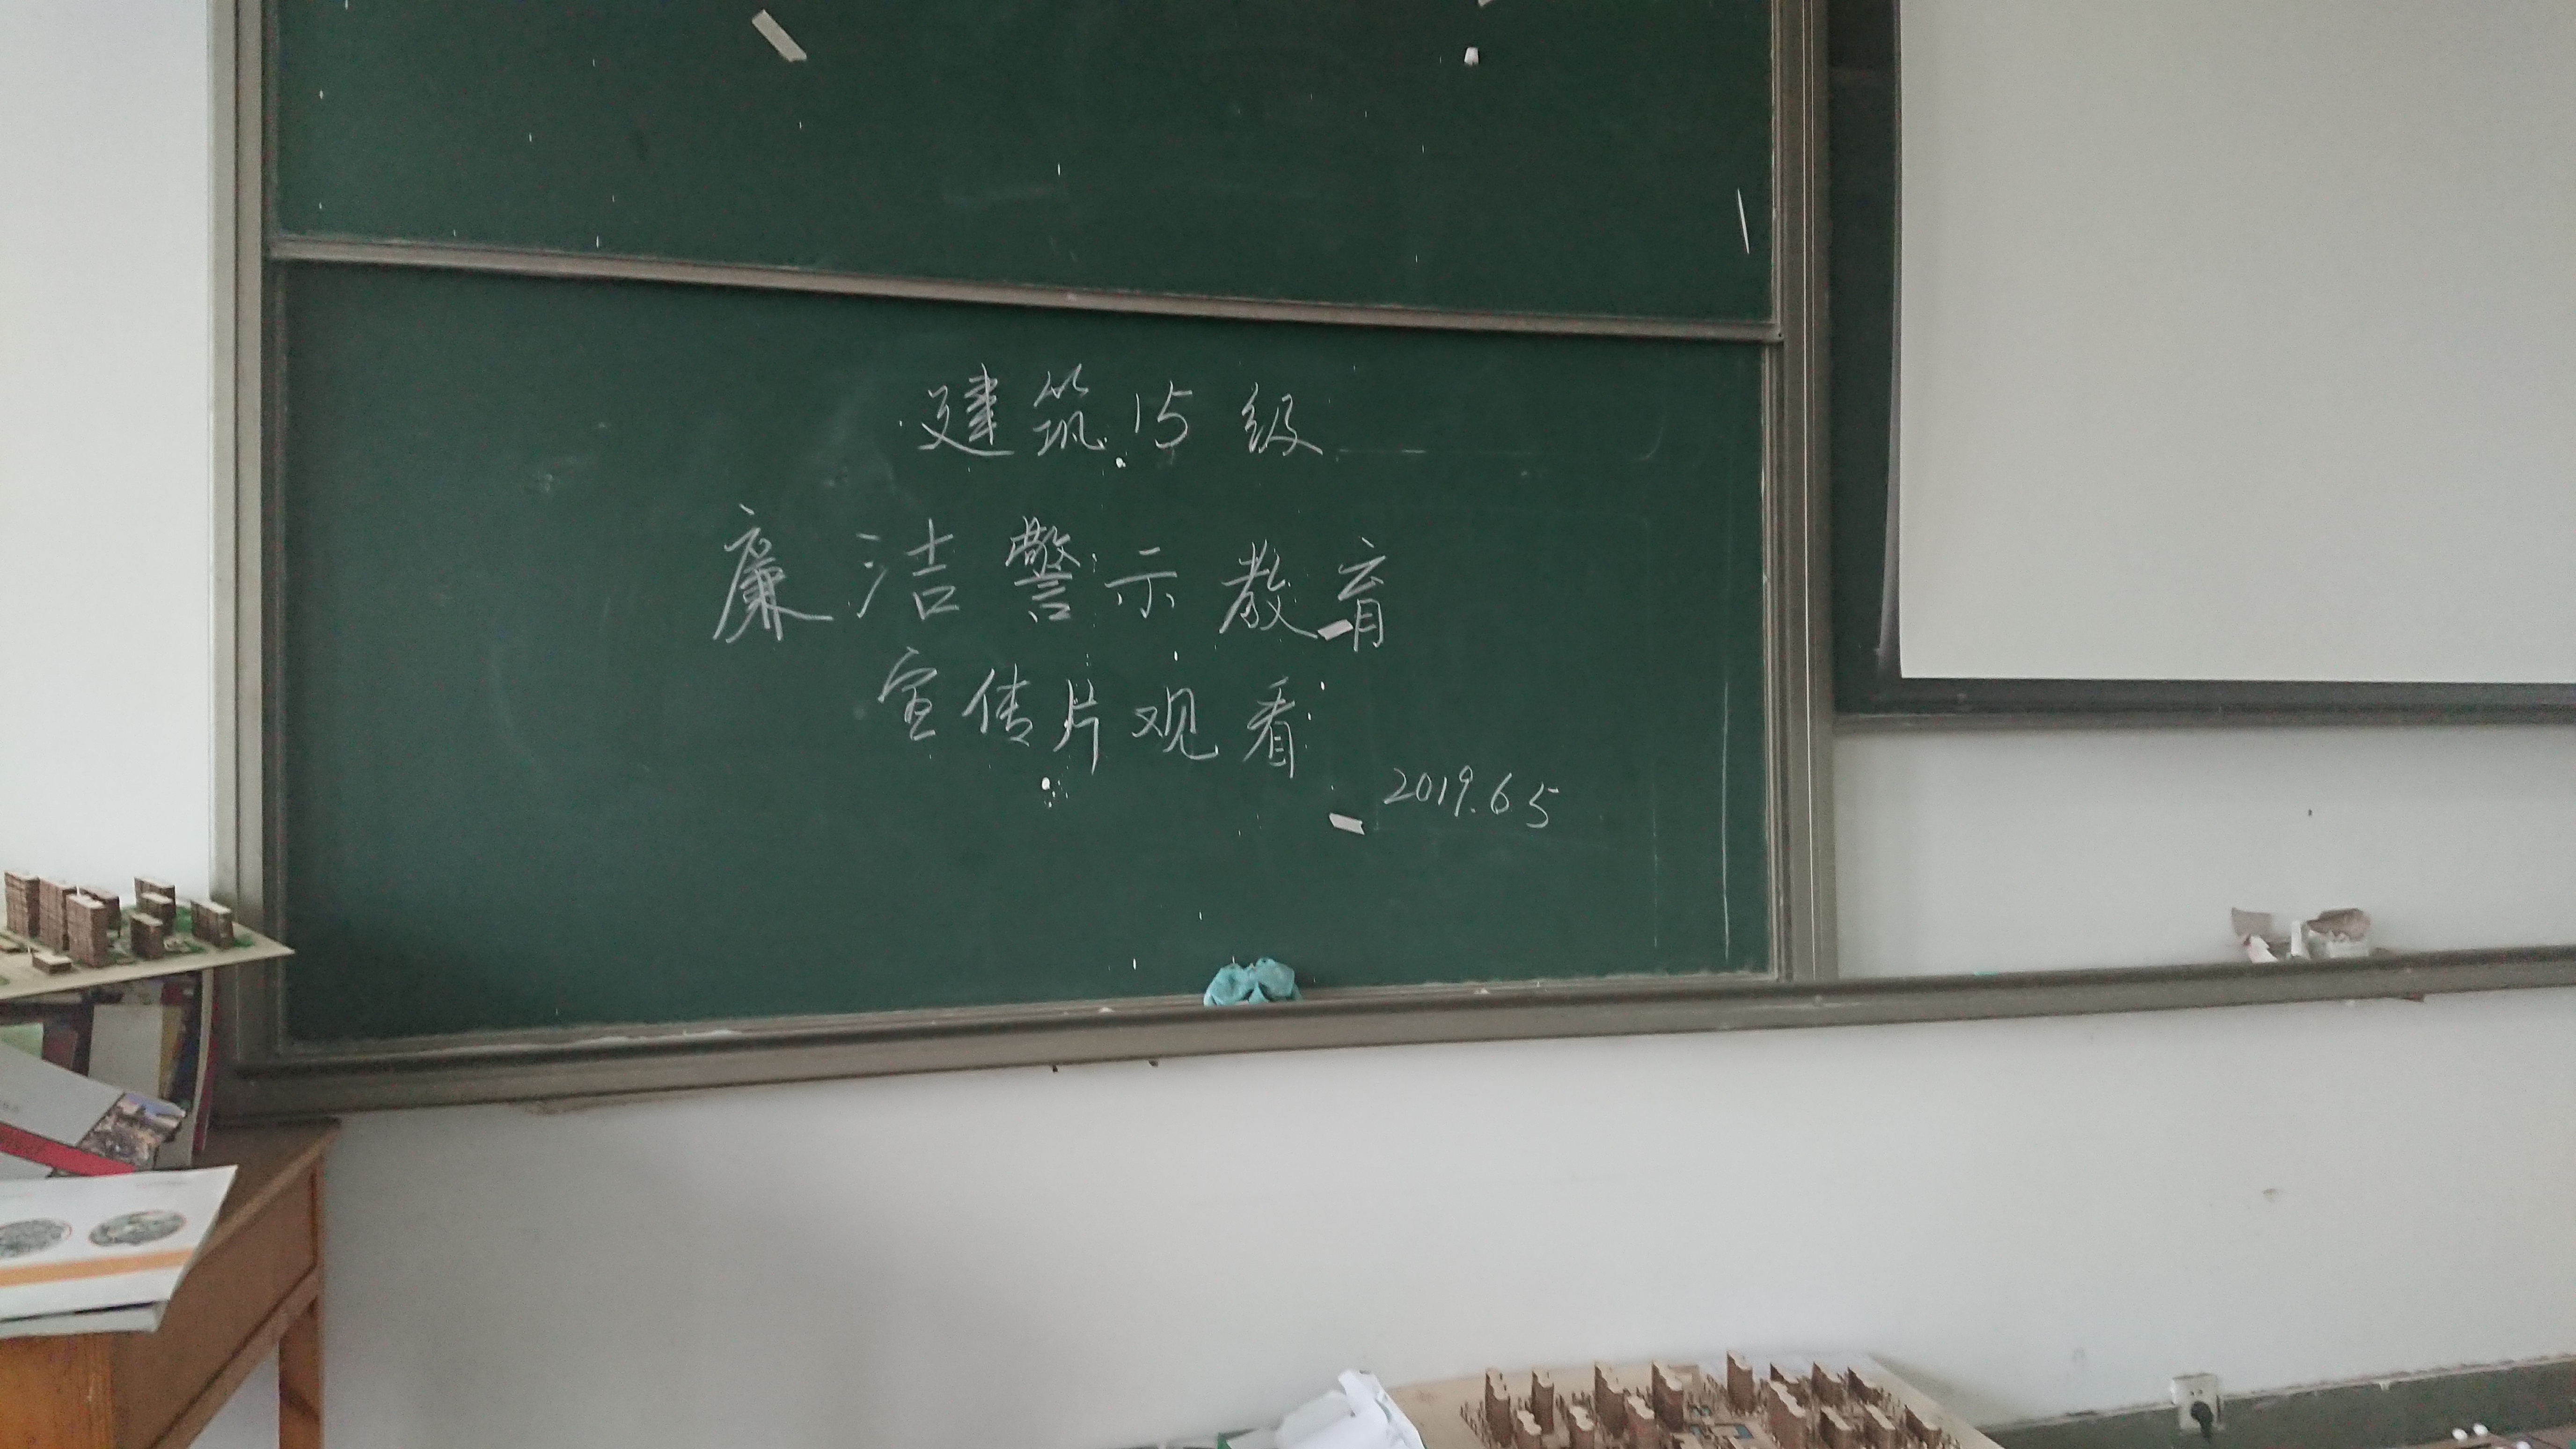 建筑15级
廉洁警示教育
宣传片观看
2019.6.5